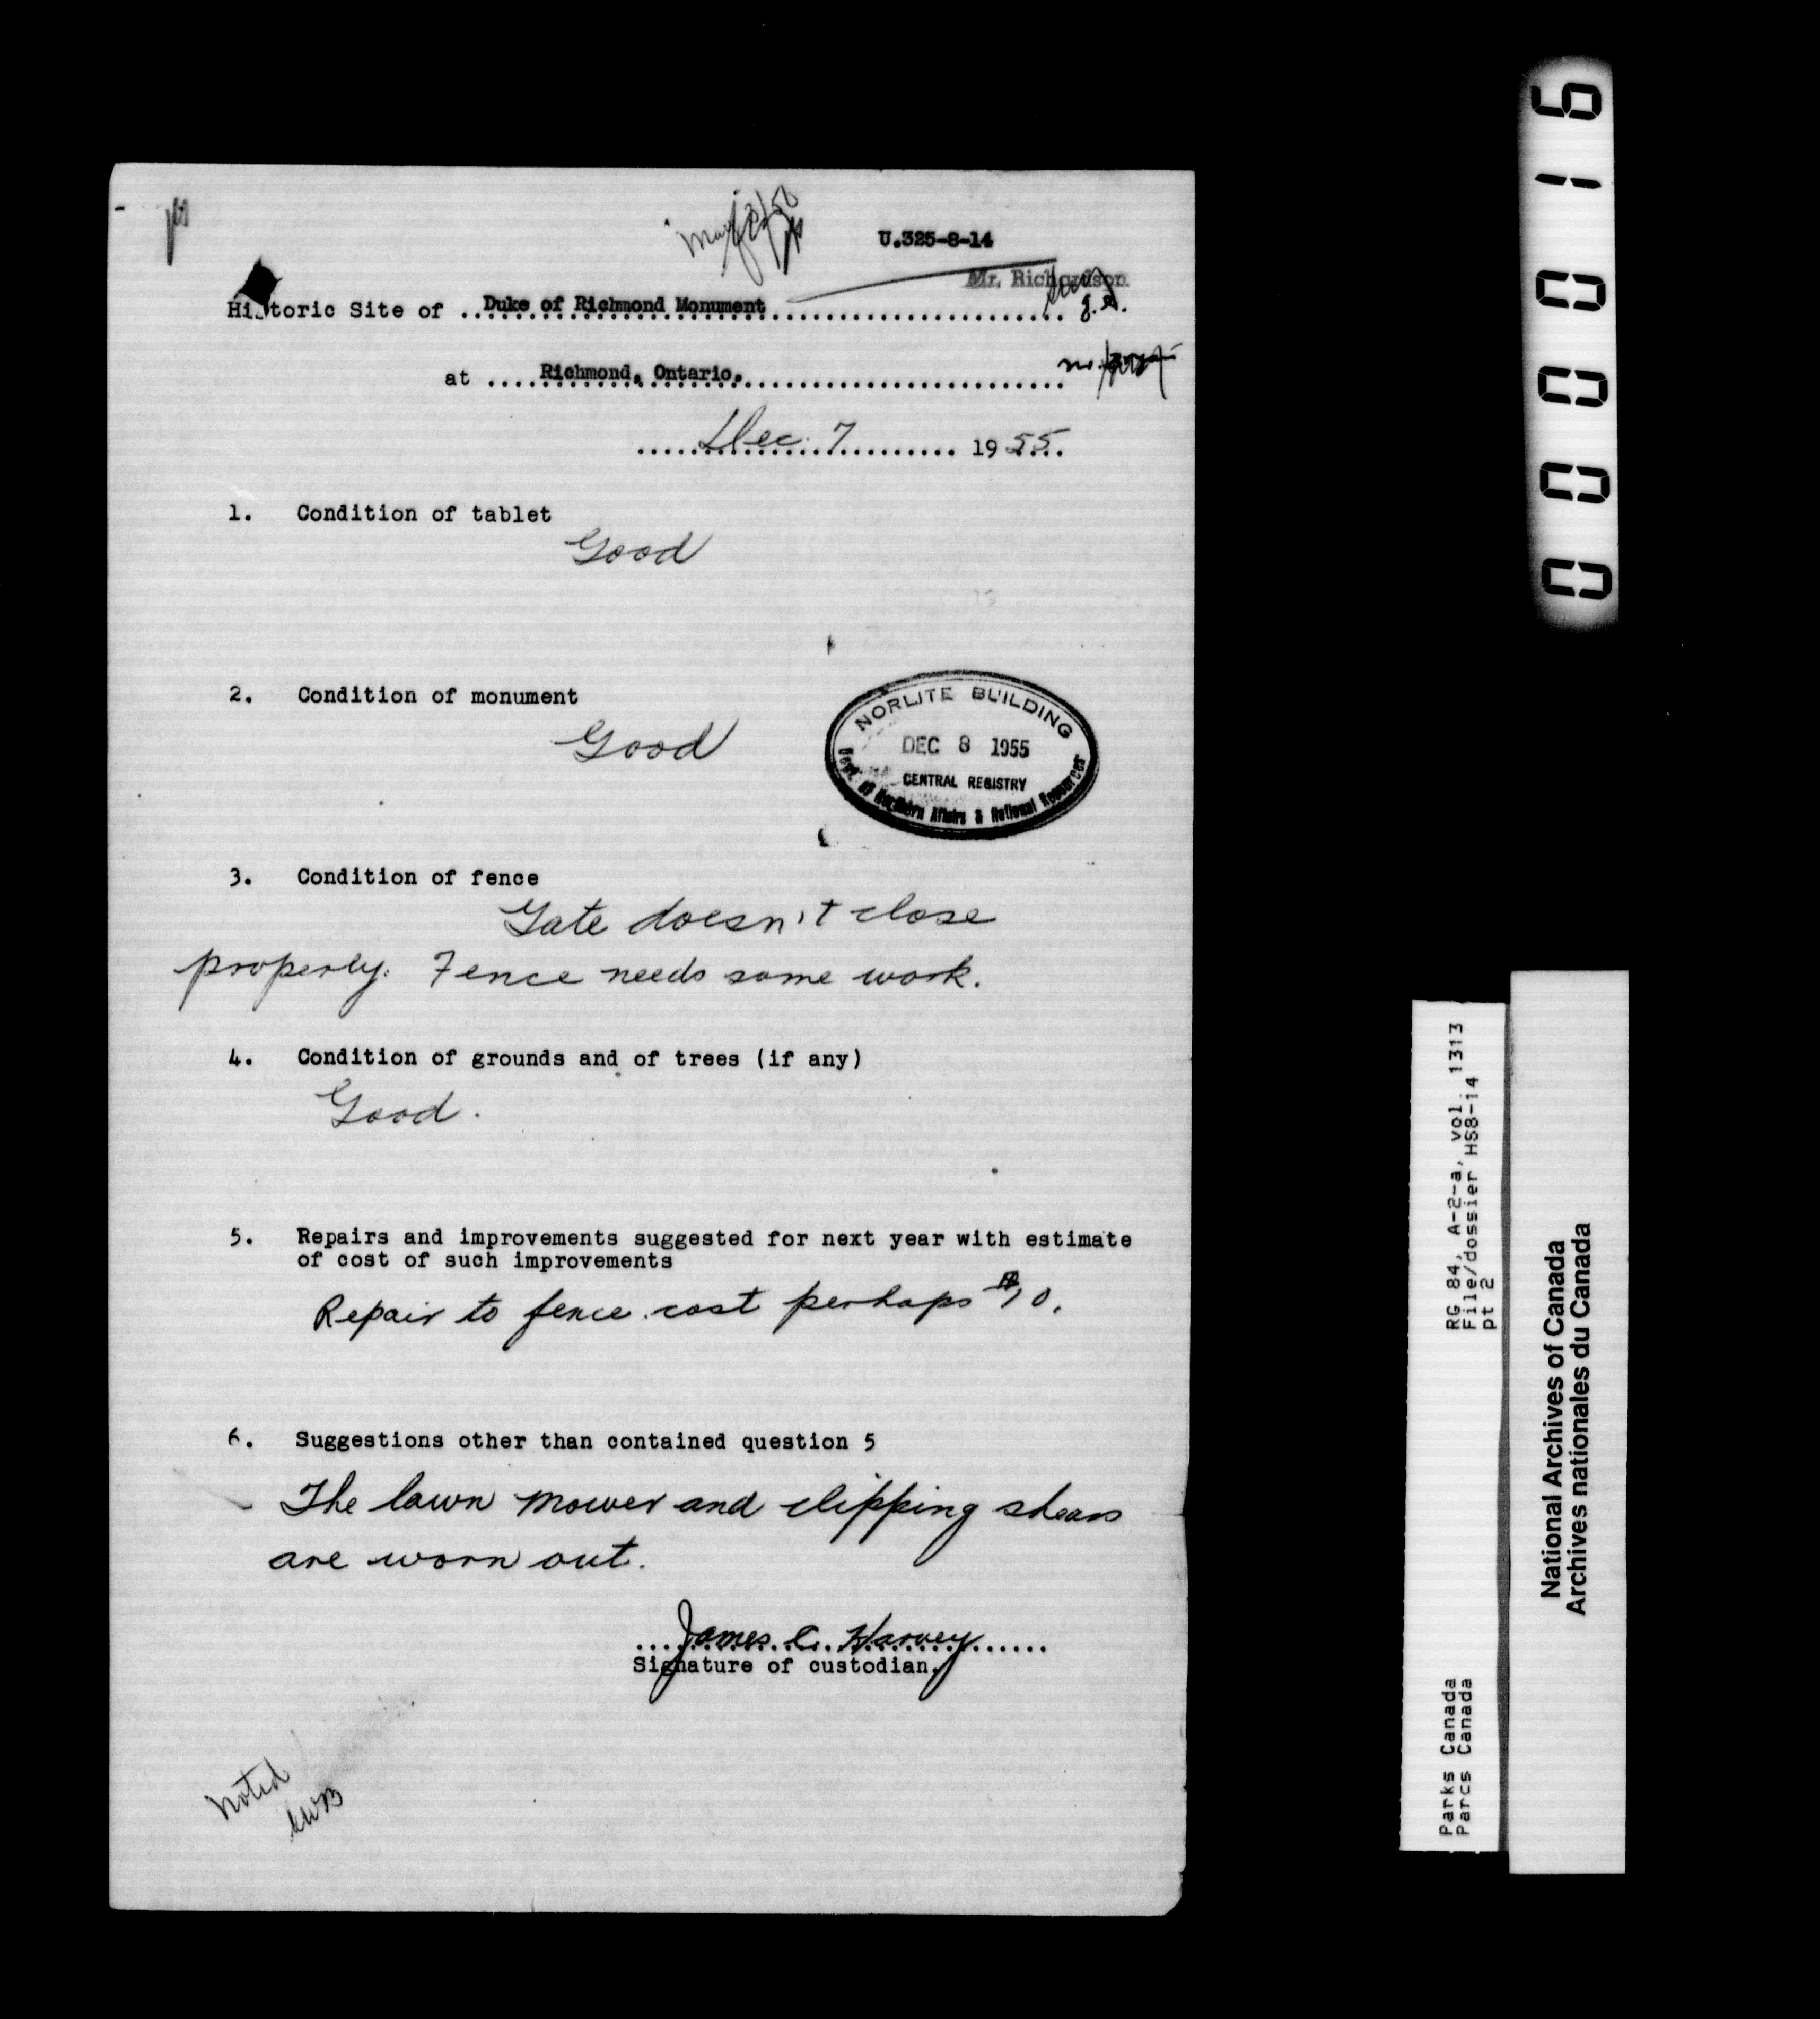 U.325-8-14
Mr. Richardson
Historic Site of .. Duke of Richmond Monument ..... g.e.
at .... Richmond, Ontario. .....
..... Dec. 7 ......... 19 55...
1. Condition of tablet
Good
2. Condition of monument
Good
NORLITE BUILDING
DEC 8 1955
CENTRAL REGISTRY
Dept. of Northern Affairs & National Resources
3. Condition of fence
Gate doesn't close
properly. Fence needs some work.
4. Condition of grounds and of trees (if any)
Good.
5. Repairs and improvements suggested for next year with estimate
of cost of such improvements
Repair to fence. cost perhaps $10.
6. Suggestions other than contained question 5
The lawn mower and clipping shears
are worn out.
James C. Harvey
Signature of custodian.
Noted
000016
RG 84, A-2-a, vol. 1313
File/dossier HS8-14
pt 2
Parks Canada
Parcs Canada
National Archives of Canada
Archives nationales du Canada